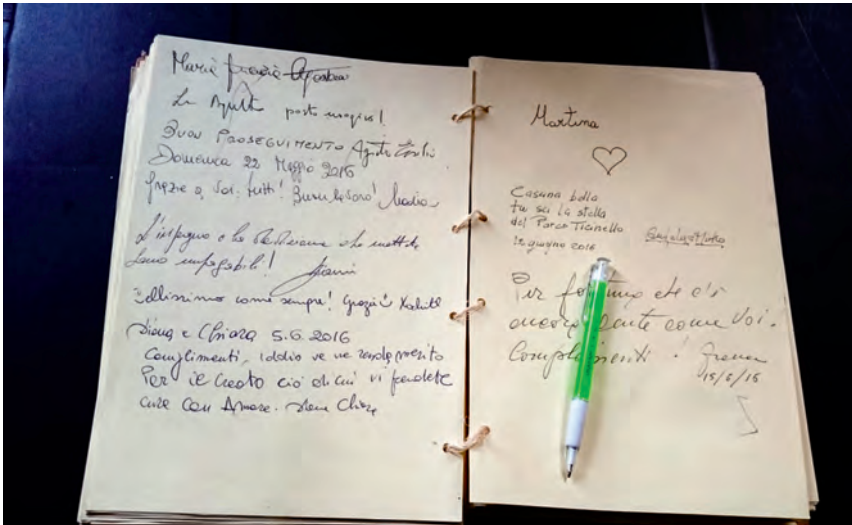 Maria
posto magico!
Buon PROSEGUIMENTO
Domenica 22 Maggio 2016
Grazie a Voi tutti! Buon lavoro!
L'impegno e la che mettete
sono impagabili!
Bellissimo come sempre! Grazie
Diana e Chiara 5.6.2016
Complimenti, Iddio ve ne renda merito
Per il Creato ciò di cui vi prendete
cura con Amore. Diana Chiara
Martina
Cascina bella
tu sei la stella
del Parco Ticinello
12 giugno 2016
Per fortuna che c'è
ancora gente come Voi.
Complimenti!